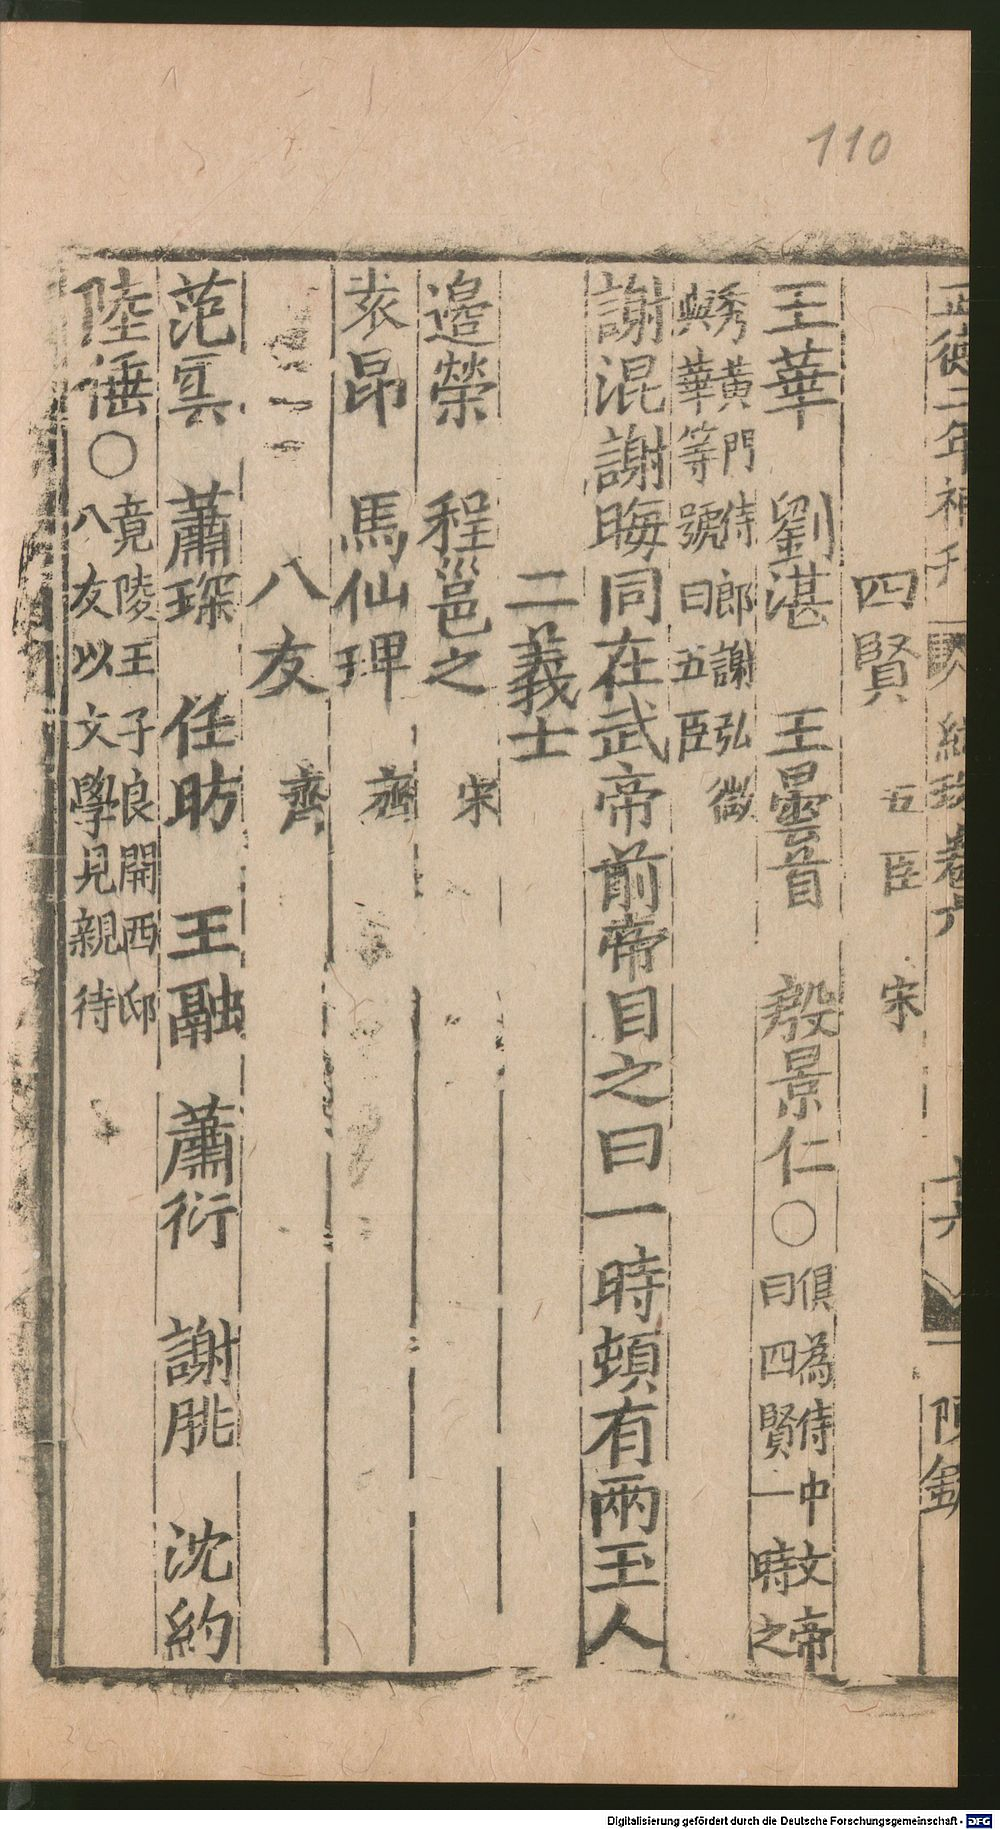 110
正德二年補刊
卷六
十六
四賢 五臣 宋
王華 劉湛 王曇首 殷景仁〇俱為侍中文帝
曰四賢一時之
秀黃門侍郎謝弘微
與華等號曰五臣
謝混謝晦同在武帝前帝目之曰一時頓有兩玉人
二義士 宋
邉榮 程邕之 齊
袁昂 馬仙琕
八友 齊
范雲 蕭琛 任昉 王融 蕭衍 謝朓 沈約
陸倕〇竟陵王子良開西邸
八友以文學見親待
Digitalisierung gefördert durch die Deutsche Forschungsgemeinschaft - DFG